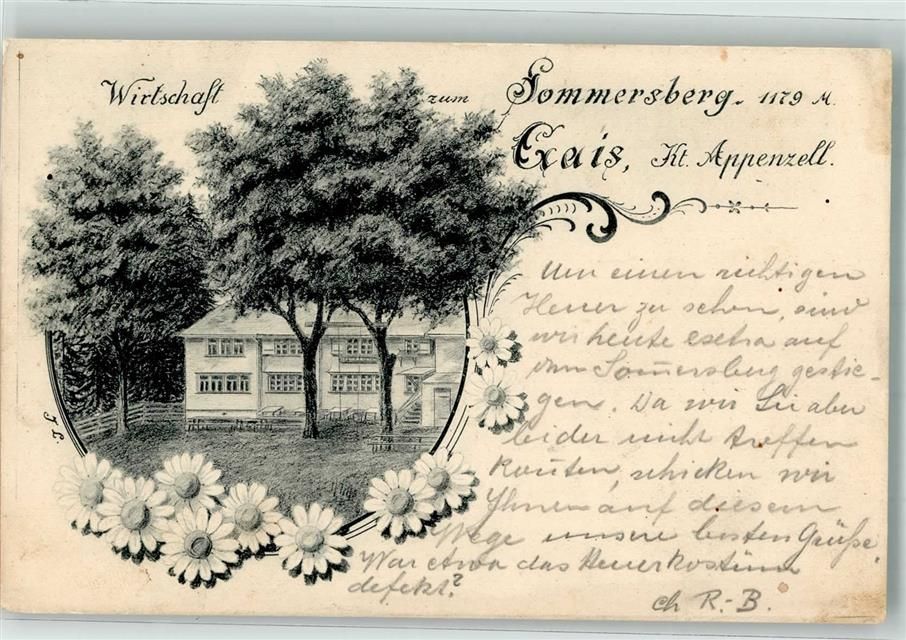 Wirtschaft zum Sommersberg. 1179 M.
Gais, Kt. Appenzell.
Um einen richtigen
Heuer zu sehen, sind
wir heute extra auf
den Som̄ersberg gestie-
gen. Da wir Sie aber
leider nicht treffen
kon̄ten, schicken wir
Ihnen auf diesem
Wege unsere besten Grüße.
War etwa das Heuerkostüm
defekt?
ch R.-B.
J L.